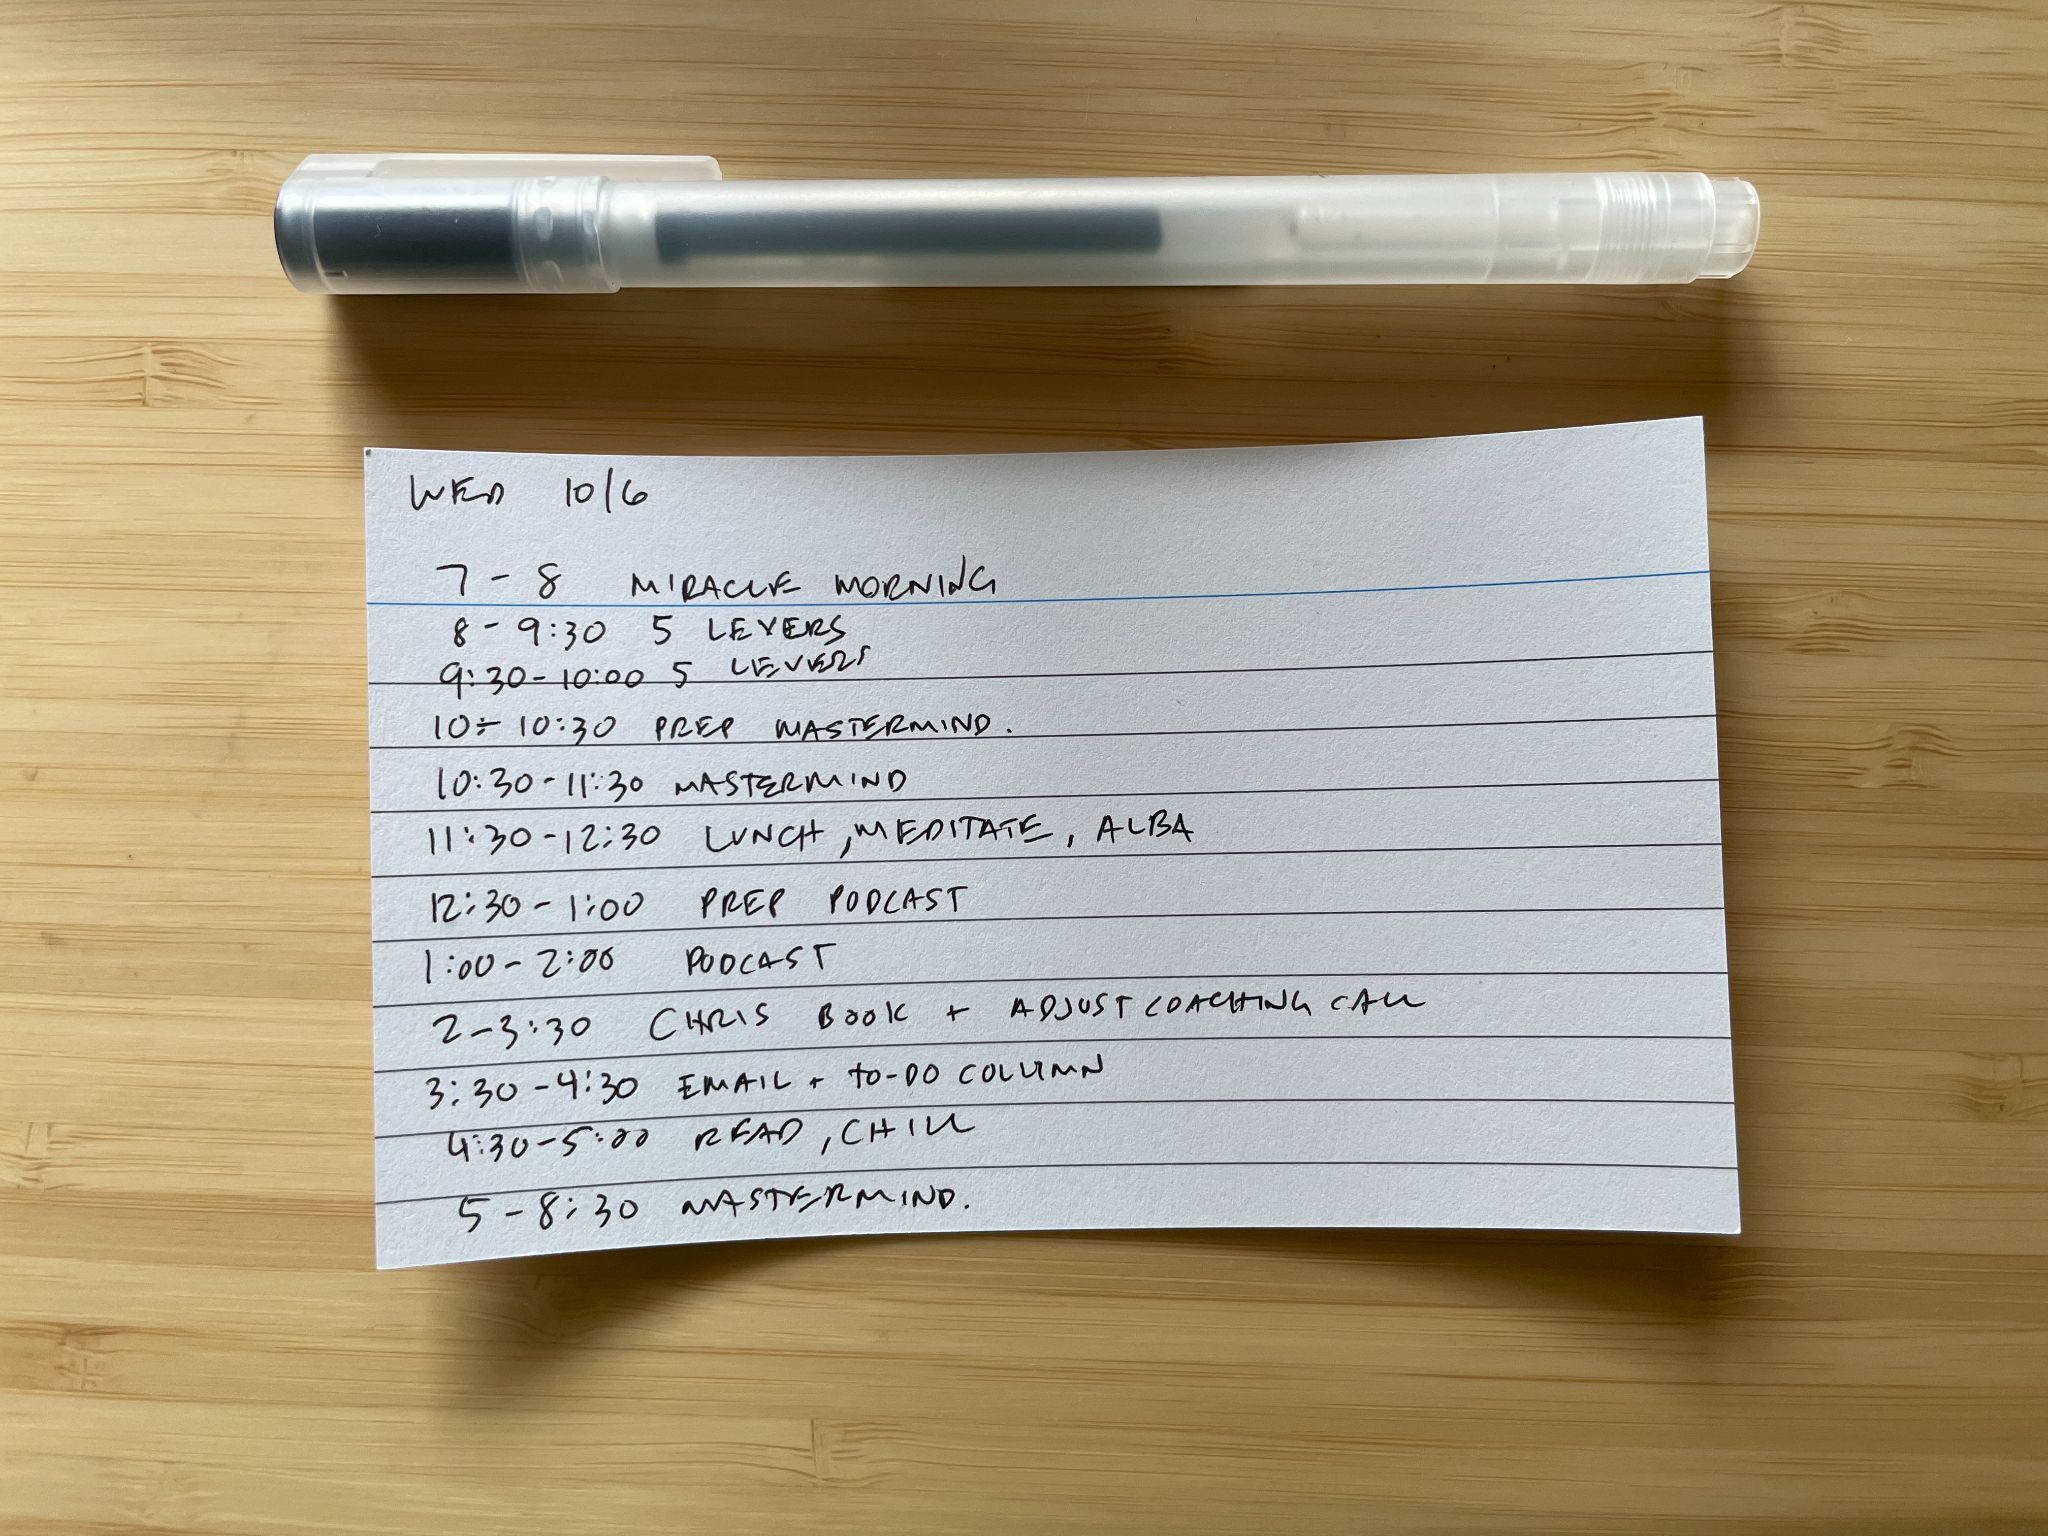 WED 10/6
7 - 8 MIRACLE MORNING
8 - 9:30 5 LEVERS
9:30 - 10:00 5 LEVERS
10 - 10:30 PREP MASTERMIND.
10:30 - 11:30 MASTERMIND
11:30 - 12:30 LUNCH, MEDITATE, ALBA
12:30 - 1:00 PREP PODCAST
1:00 - 2:00 PODCAST
2 - 3:30 CHRIS BOOK + ADJUST COACHING CALL
3:30 - 4:30 EMAIL + TO-DO COLUMN
4:30 - 5:00 READ, CHILL
5 - 8:30 MASTERMIND.